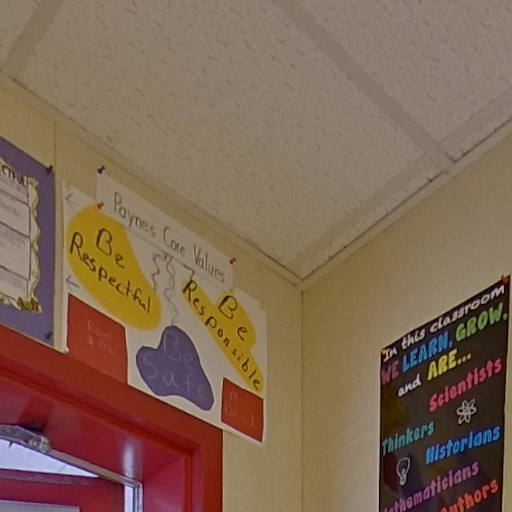 Paynes Core Values
Be
Respectful
Be
Responsible
Be
Safe
In this classroom
WE LEARN, GROW,
and ARE...
Scientists
Thinkers
Historians
Mathematicians
Authors